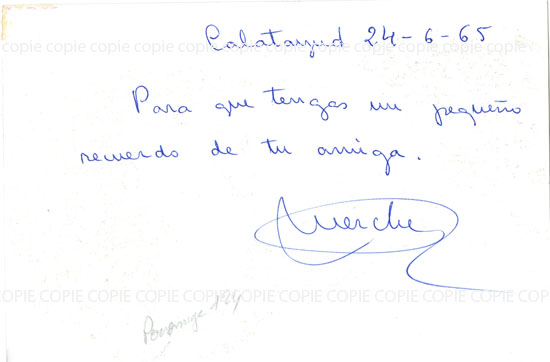 COPIE COPIE COPIE COPIE COPIE COPIE COPIE COPIE COPIE COPIE COPIE COPIE
Calatayud 24-6-65
Para que tengas un pequeño
recuerdo de tu amiga.
Merche
COPIE COPIE COPIE COPIE COPIE COPIE COPIE COPIE COPIE COPIE COPIE COPIE